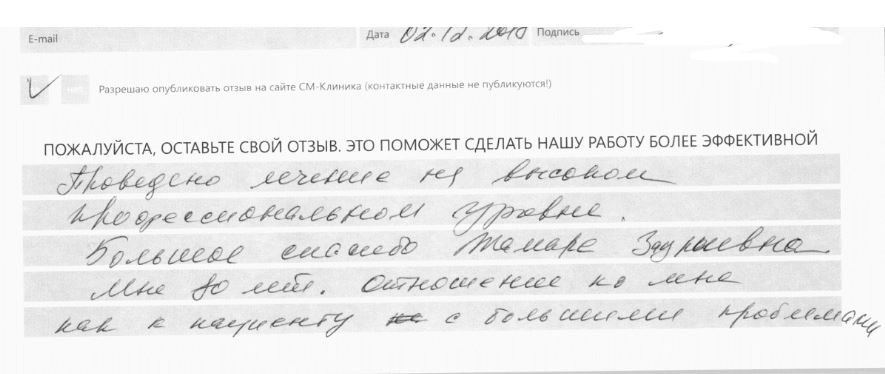 E-mail Дата 02.12.2018 Подпись
нет Разрешаю опубликовать отзыв на сайте СМ-Клиника (контактные данные не публикуются!)
ПОЖАЛУЙСТА, ОСТАВЬТЕ СВОЙ ОТЗЫВ. ЭТО ПОМОЖЕТ СДЕЛАТЬ НАШУ РАБОТУ БОЛЕЕ ЭФФЕКТИВНОЙ
Проведено лечение на высоком
профессиональном уровне.
Большое спасибо Тамаре
Мне 80 лет. Отношение ко мне
как к пациенту с большими проблемами